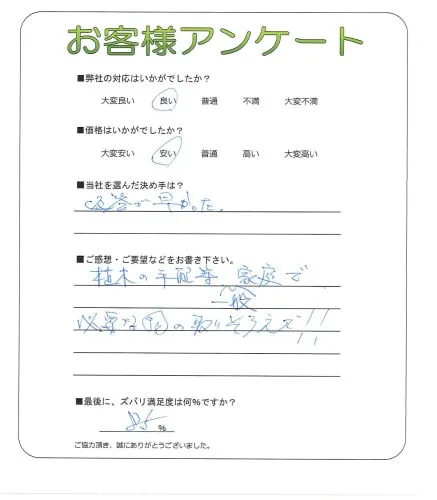 お客様アンケート
■弊社の対応はいかがでしたか?
大変良い 良い 普通 不満 大変不満
■価格はいかがでしたか?
大変安い 安い 普通 高い 大変高い
■当社を選んだ決め手は?
応答が早かった。
■ご感想・ご要望などをお書き下さい。
植木の手配等、家庭で
一般
必要な の取りそろえで!!
■最後に、ズバリ満足度は何%ですか?
85 %
ご協力頂き、誠にありがとうございました。